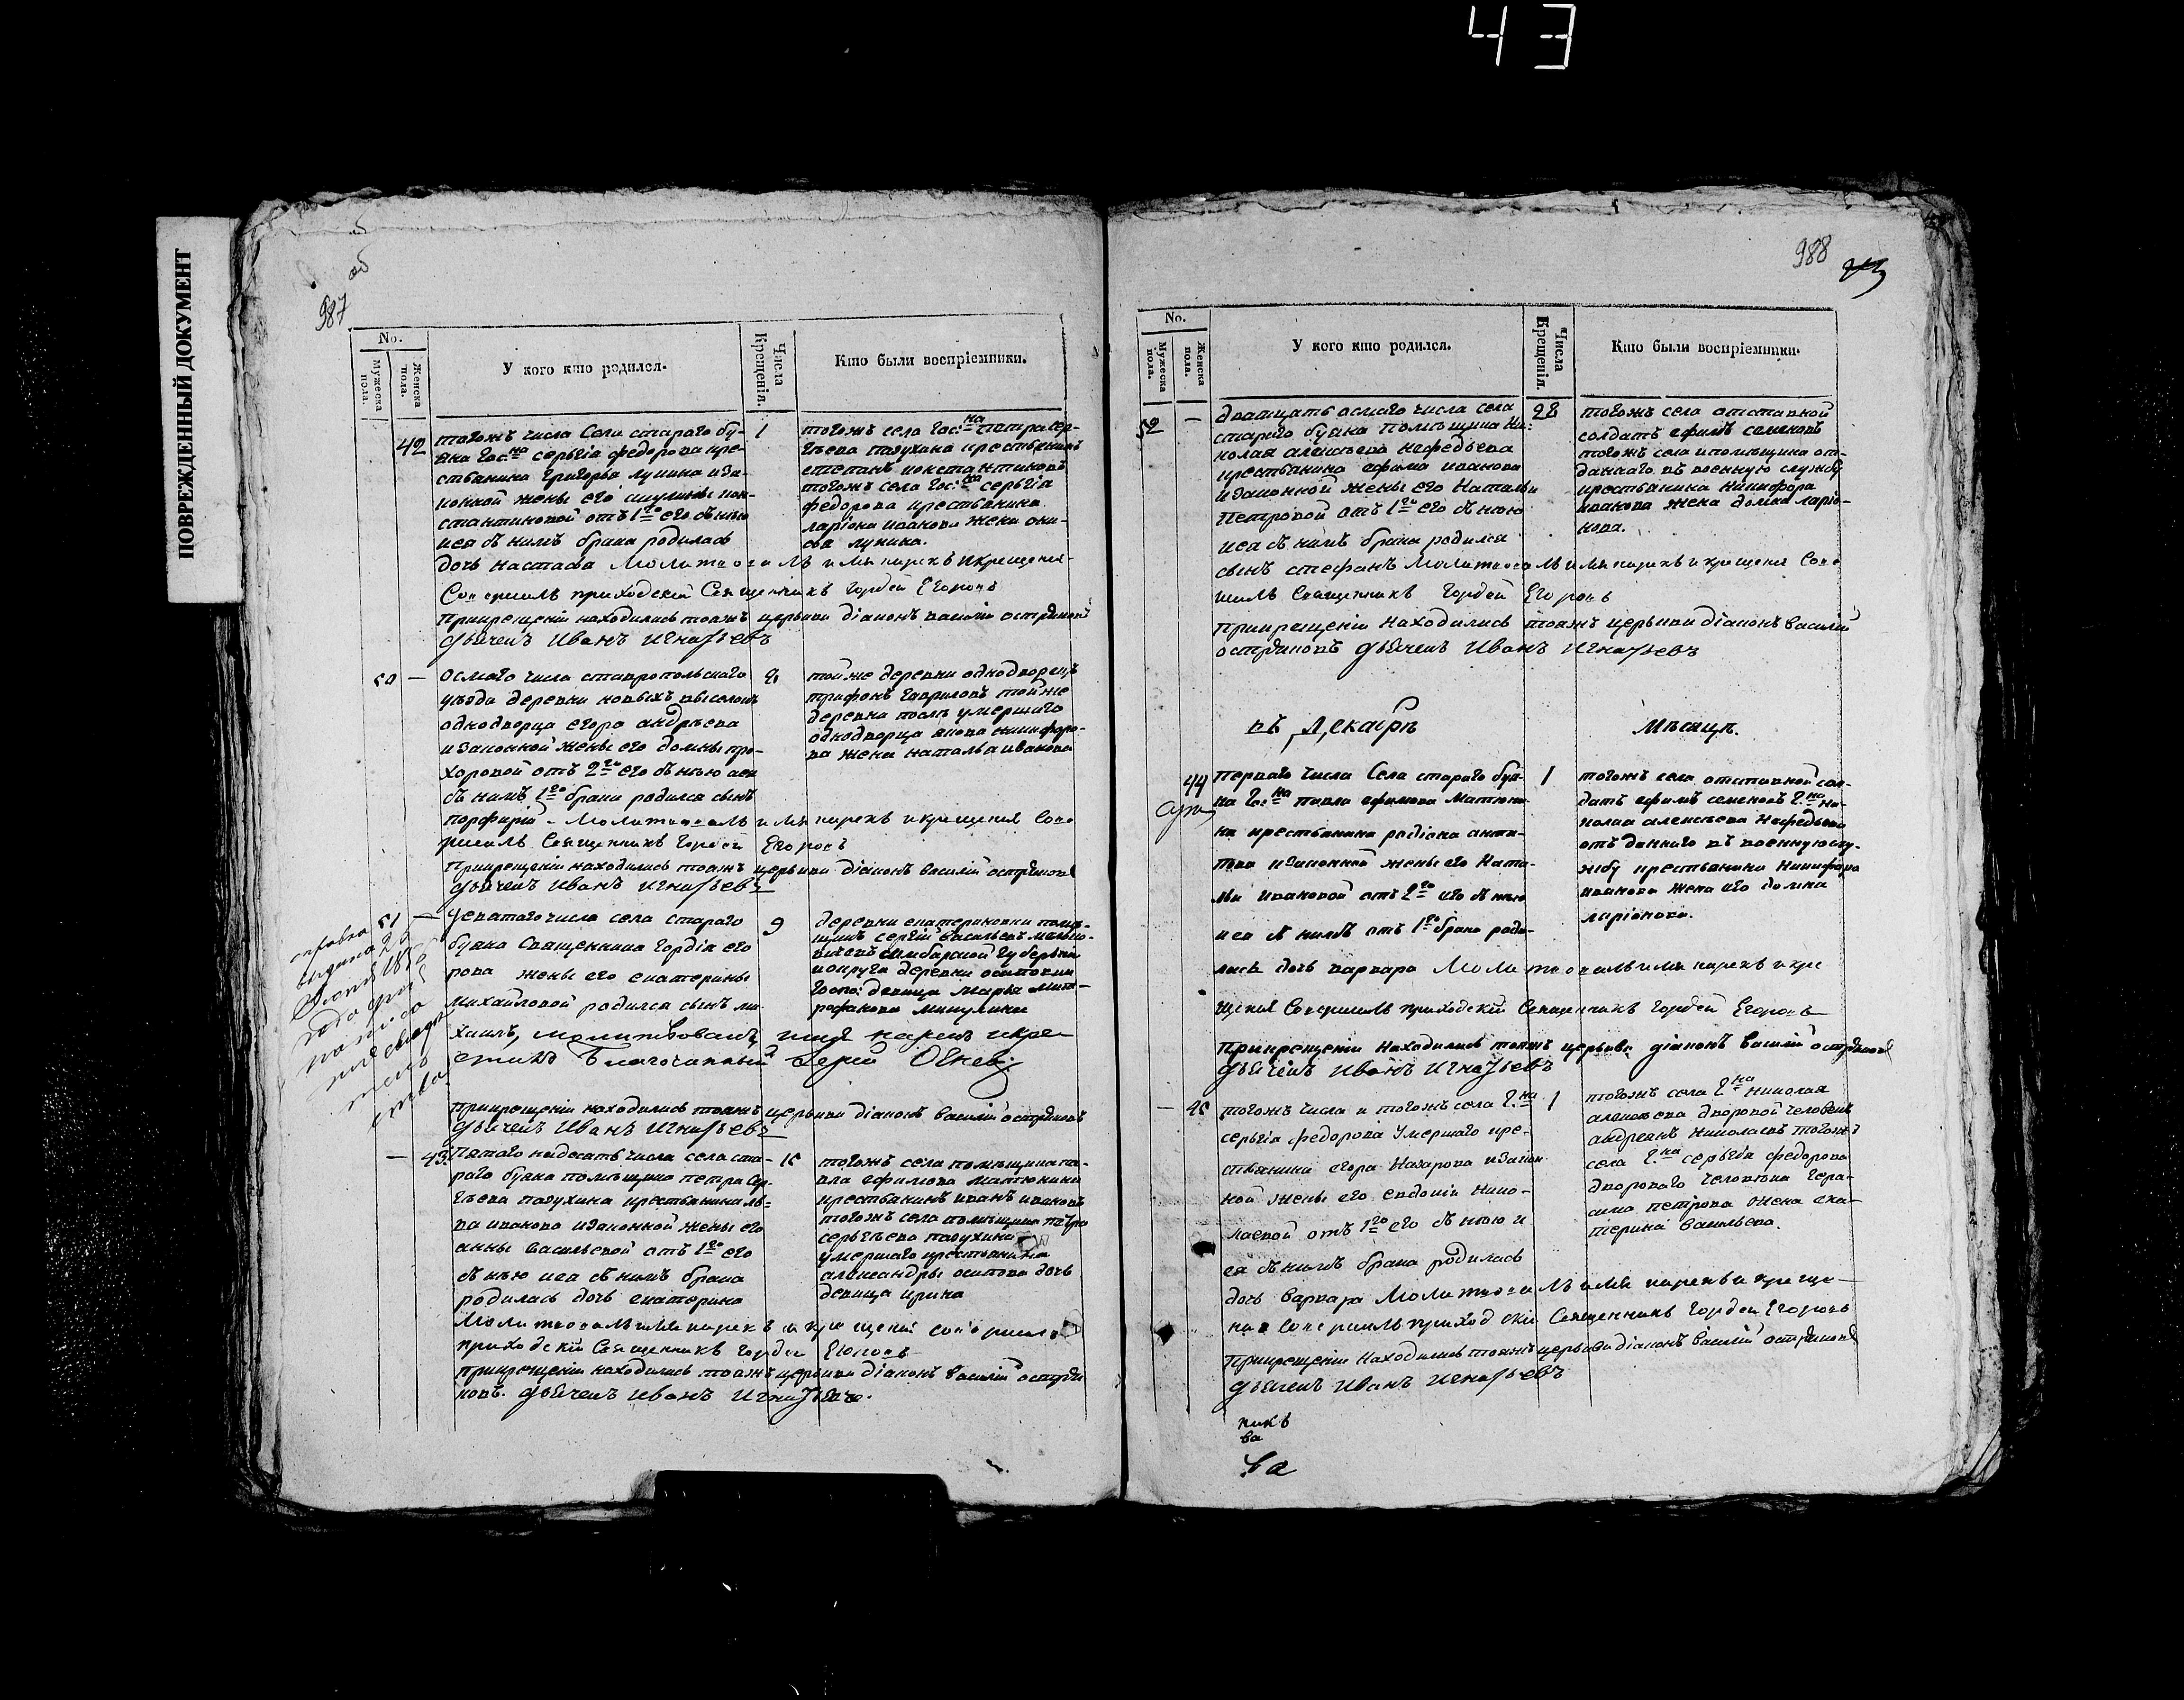 43
ПОВРЕЖДЕННЫЙ ДОКУМЕНТ
987
No.
Мужеска пола.
Женска пола.
У кого кто родился.
Числа Крещенія.
Кто были воспріемники.
42
тогожъ числа Села старого бу-
яна Гос:на сергія федорова кре-
стьянина григорья лунина иза-
конной жены его
стантиновой отъ 1го его съ нею
иея съ нимъ брака родилась
дочь настасья Молитвовалъ имя нарекъ икрещеніе
Совершилъ приходскій Священникъ Гордей Егоровъ
прикрещеніи находились тояжъ церькви діаконъ василій остряковъ
дьячекъ Иванъ Игнатьевъ
1
тогожъ села Гос:на петра сер-
гѣева пазухина крестьянинъ
степанъ константиновъ
тогожъ села Гос:на сергія
федорова крестьянина
ларіона иванова жена ани-
сья лунина.
50 —
Осмаго числа ставропольскаго
уѣзда деревни новыхъ выселокъ
однодворца егора андрѣева
изаконной жены его домны про-
хоровой отъ 2го его съ нею аея
съ нимъ 1го брака родился сынъ
порфирій - Молитвовалъ имя нарекъ икрещеніе Сове
ршилъ Священникъ Гордей Егоровъ
Прикрещеніи находились тояжъ церькви діаконъ василій остряковъ
дьячекъ Иванъ Игнатьевъ
8
тойже деревни однодворецъ
трифонъ гавриловъ тойже
деревни послѣ умершаго
однодворца якова никифоро-
ва жена наталья иванова
51 —
девятаго числа села стараго
буяна Священника Гордія его
рова жены его екатерины
михайловой родился сынъ ми-
хаилъ, молитвовалъ имя нарекъ икре
стилъ Благочинный Іерей
9
деревни екатериновки помѣ-
щикъ сергій васильевъ
симбирской губерніи
иокруга деревни осиповки
Госпо: девица Марья Мит-
рофанова
справка
выдана
Прикрещеніи находились тояжъ церькви діаконъ василій остряковъ
дьячекъ Иванъ Игнатьевъ
— 43.
Пятаго надесять числа села ста-
раго буяна помѣщика петра сер-
гѣева пазухина крестьянина ль-
ва иванова изаконной жены его
анны васильевой отъ 1го его
съ нею иея съ нимъ брака
родилась дочь екатерина
Молитвовалъ имя нарекъ и крещеніе совершилъ
приходскій Священникъ Гордей Егоровъ
прикрещеніи находились тояжъ церькви діаконъ василій остря
ковъ. дьячекъ Иванъ Игнатьевъ.
15
тогожъ села помѣщика па-
вла ефимова матюнина
крестьянинъ иванъ ивановъ
тогожъ села помѣщика петра
сергѣева пазухина
умершаго крестьянина
александры осипова дочь
девица ирина
988
43
No.
Мужеска пола.
Женска пола.
У кого кто родился.
Числа Крещенія.
Кто были воспріемники.
52 —
дватцать осмаго числа села
стараго буяна помѣщика Ни-
колая алексѣева Нефедьева
крестьянина ефима иванова
изаконной жены его Натальи
Петровой отъ 1го его съ нею
иея съ нимъ брака родился
сынъ стефанъ Молитвовалъ имя нарекъ и крещеніе Сове
шилъ Священникъ Гордей Егоровъ
Прикрещеніи Находились тояжъ церькви діаконъ василій
остряковъ дьячекъ Иванъ Игнатьевъ
28
тогожъ села отставной
солдатъ ефимъ семеновъ
тогожъ села ипомѣщика от-
даннаго въ военную службу
крестьянина Никифора
иванова жена домна ларіо-
нова.
въ Декабрѣ Мѣсяцѣ.
44
перваго числа Села стараго буя-
на Го:на павла ефимова Матюни-
на крестьянина родіона анти-
пова изаконной жены его Ната-
льи ивановой отъ 2го его съ нею
иея съ нимъ отъ 1го брака роди-
лась дочь варвара Молитвовалъ имя нарекъ и кре
щеніе Совершилъ приходскій Священникъ Гордей Егоровъ
Прикрещеніи Находились тояжъ церькви діаконъ василій остряковъ
дьячекъ Иванъ Игнатьевъ
1
тогожъ села отставной сол-
датъ ефимъ семеновъ Г:на ни-
колая алексѣева Нефедьева
отъданнаго въ военную слу-
жбу крестьянина Никифора
иванова жена его домна
ларіонова.
— 45
тогожъ числа и тогожъ села Г:на
сергія федорова Умершаго кре-
стьянина егора Назарова изакон-
ной жены его евдокіи нико-
лаевой отъ 1го его съ нею и
ея съ нимъ брака родилась
дочь варвара Молитвовалъ имя нарекъ и креще-
ніе Совершилъ приходскій Священникъ Гордей Егоровъ
Прикрещеніи Находились тояжъ церькви діаконъ василій остряковъ
дьячекъ Иванъ Игнатьевъ
1
тогожъ села Г:на николая
алексѣева дворовой человѣкъ
андреянъ Николаевъ тогожъ
села Г:на сергѣя федорова
двороваго человѣка Гера-
сима петрова жена ека-
терина васильева.
никъ
ва
ва